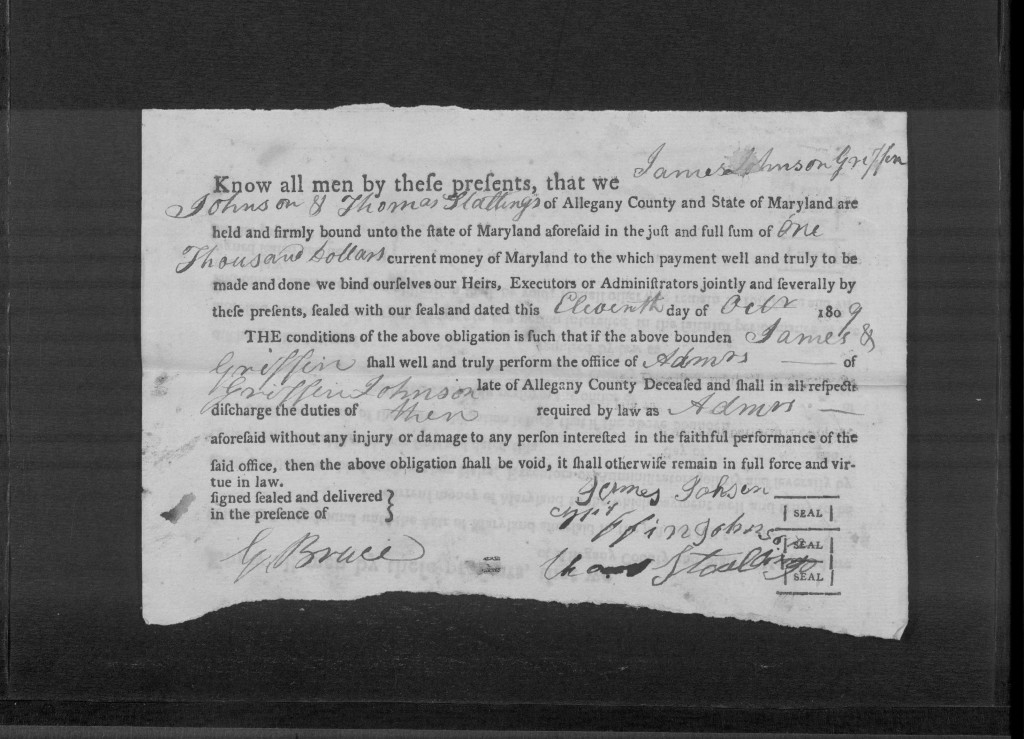 James Johnson Griffin
Know all men by theſe preſents, that we
Johnson & Thomas Stallings of Allegany County and State of Maryland are
held and firmly bound unto the ſtate of Maryland aforeſaid in the juſt and full ſum of One
Thousand Dollars current money of Maryland to the which payment well and truly to be
made and done we bind ourſelves our Heirs, Executors or Adminiſtrators jointly and ſeverally by
theſe preſents, ſealed with our ſeals and dated this Eleventh day of Octr 1809
THE conditions of the above obligation is ſuch that if the above bounden James &
Griffin ſhall well and truly perform the office of Admrs — of
Griffin Johnson late of Allegany County Deceaſed and ſhall in all reſpects
diſcharge the duties of then required by law as Admrs —
aforeſaid without any injury or damage to any perſon intereſted in the faithful performance of the
ſaid office, then the above obligation ſhall be void, it ſhall otherwiſe remain in full force and vir-
tue in law.
ſigned ſealed and delivered }
in the preſence of
James Johsen SEAL
Griffin Johnson SEAL
G Bruce
Stallings SEAL